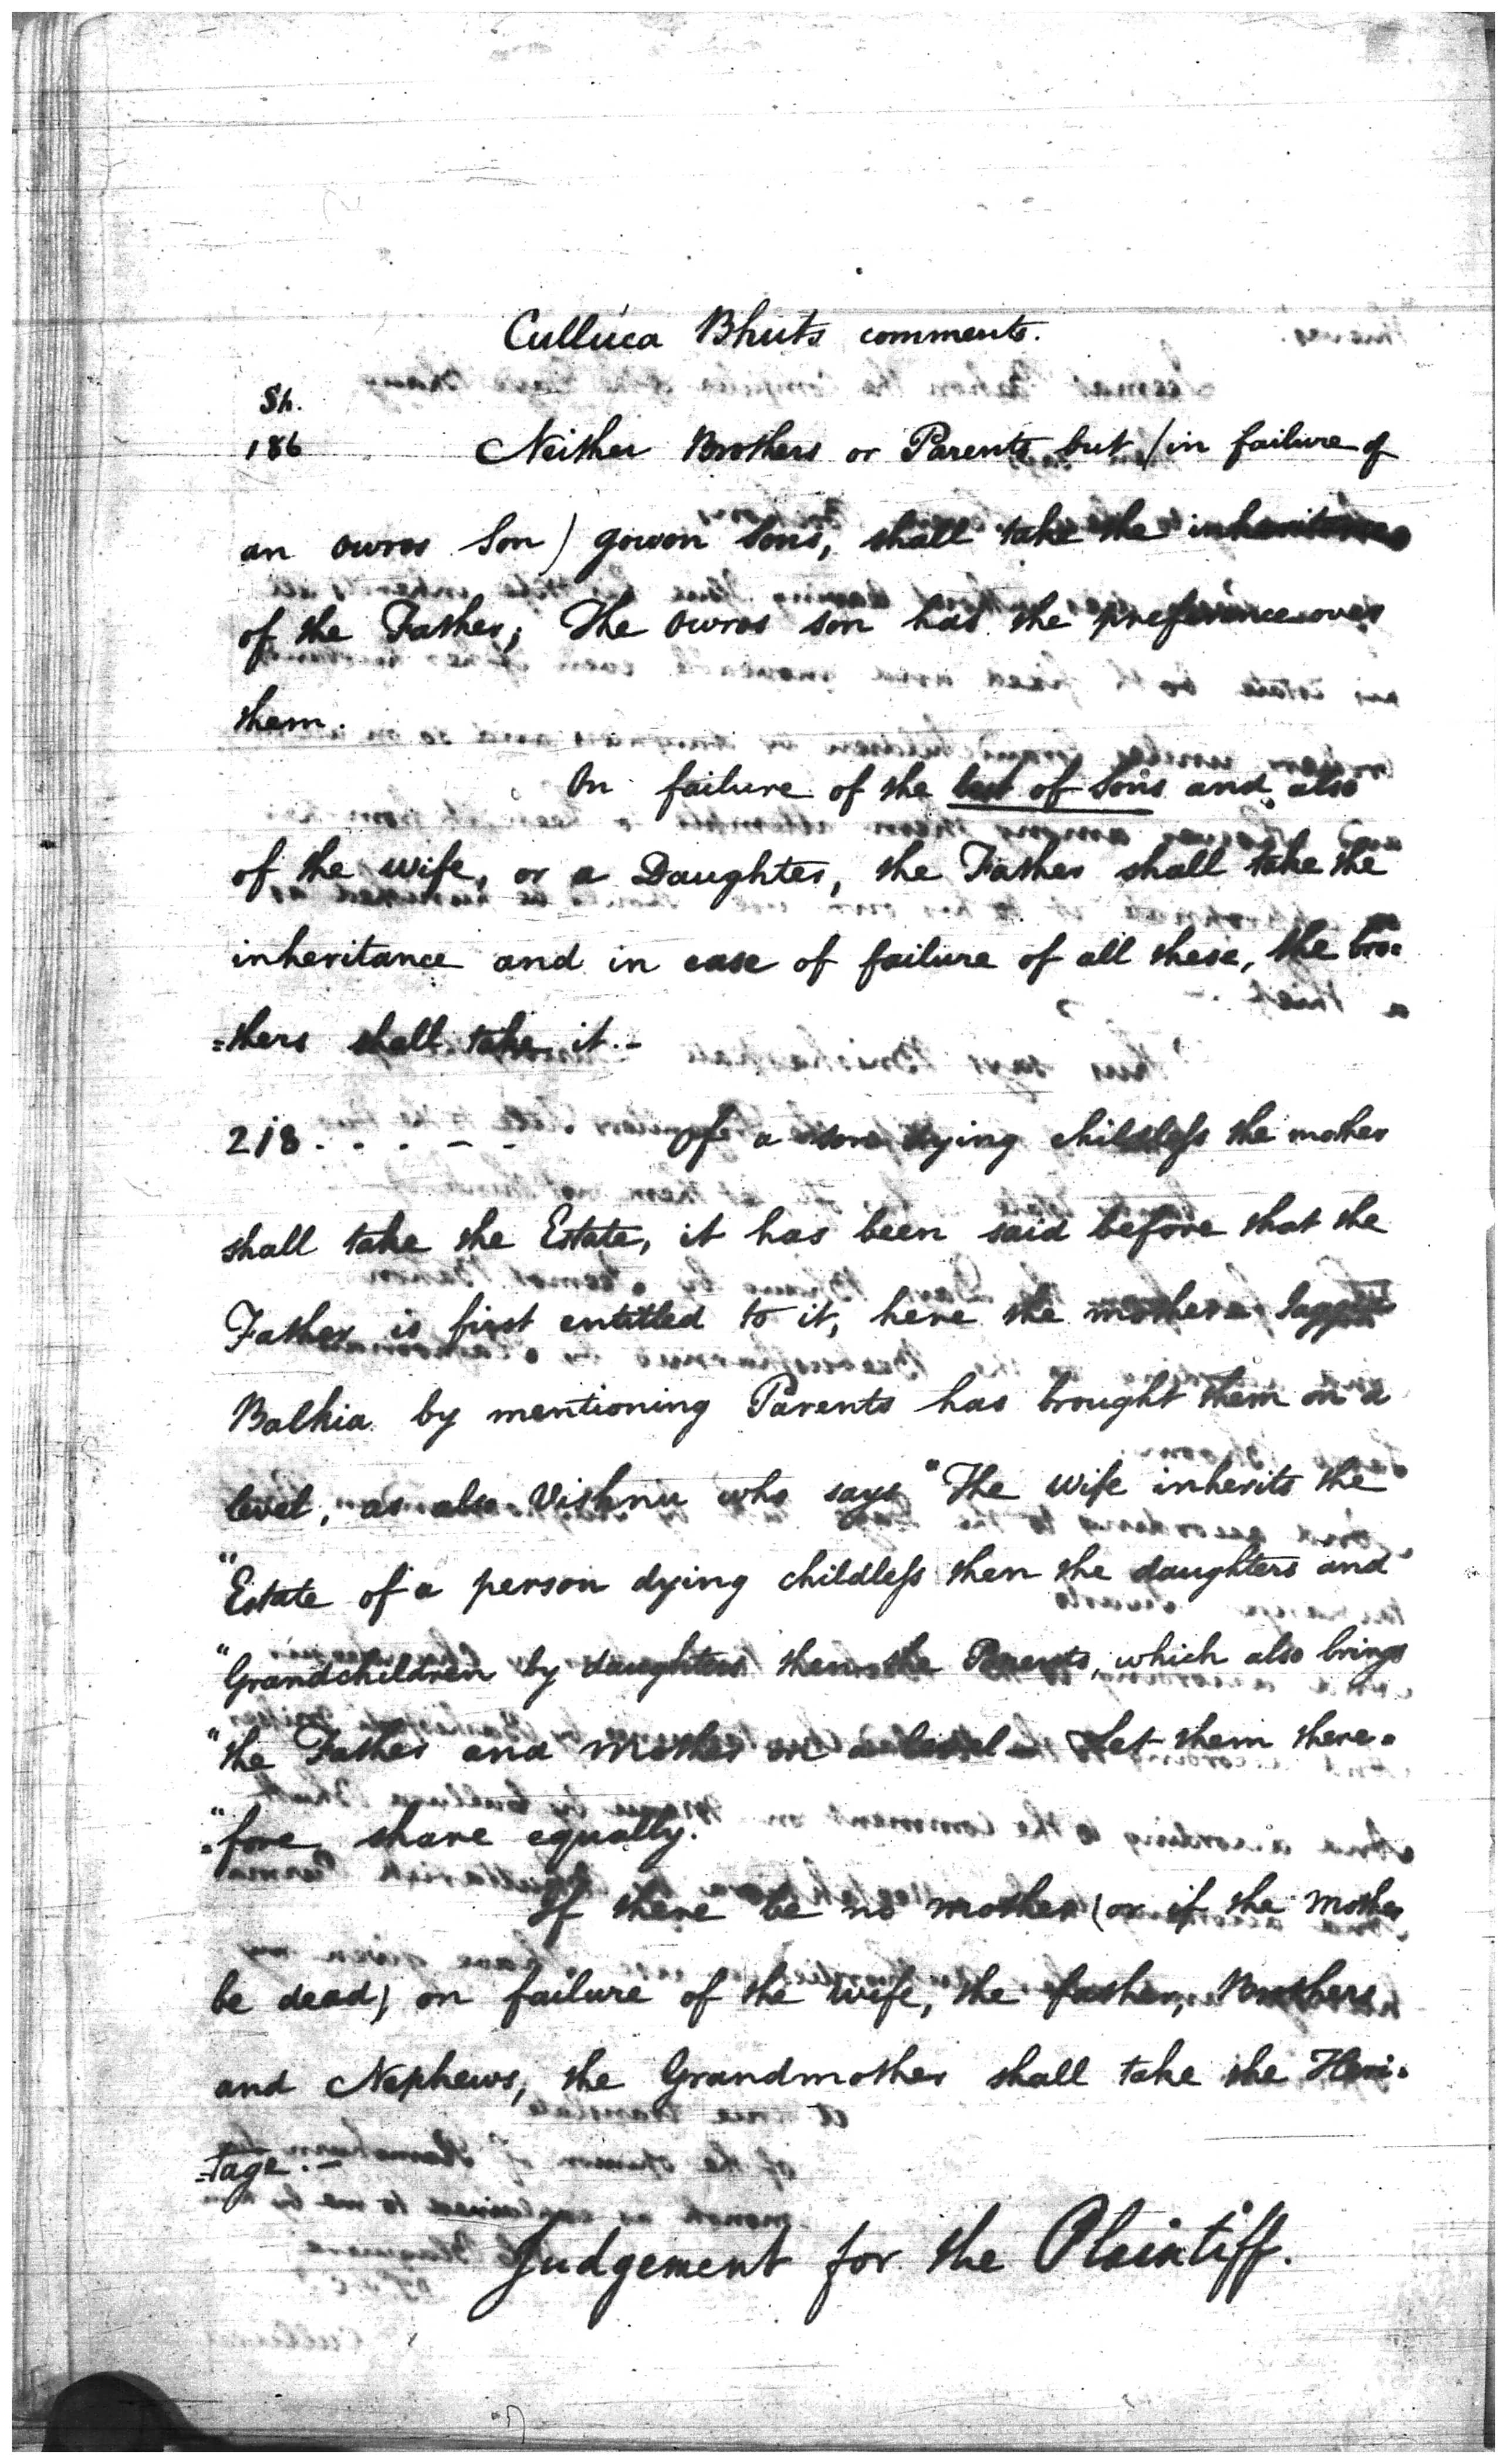 Cullúca Bhuts comments.
Sh.
186 Neither Brothers or Parents but (in failure of
an owros Son) gowon Sons, shall take the inheritance
of the Father; The owros son has the preference over
them.
On failure of the best of Sons and also
of the wife, or a Daughter, the Father shall take the
inheritance and in case of failure of all these, the bro=
=thers shall take it.-
218. . . . - - Of a son dying childless the mother
shall take the Estate, it has been said before that the
Father is first entitled to it, here the mother
Balkia by mentioning Parents has brought them on a
level, as also Vishnu who says "The wife inherits the
"Estate of a person dying childless then the daughters and
"Grandchildren by daughters then the Parents, which also brings
"the Father and Mother on a level - Let them there=
"=fore share equally.
If there be no mother (or if the mother
be dead) on failure of the wife, the father, Brothers
and Nephews, the Grandmother shall take the Heri=
=tage.-
Judgement for the Plaintiff.